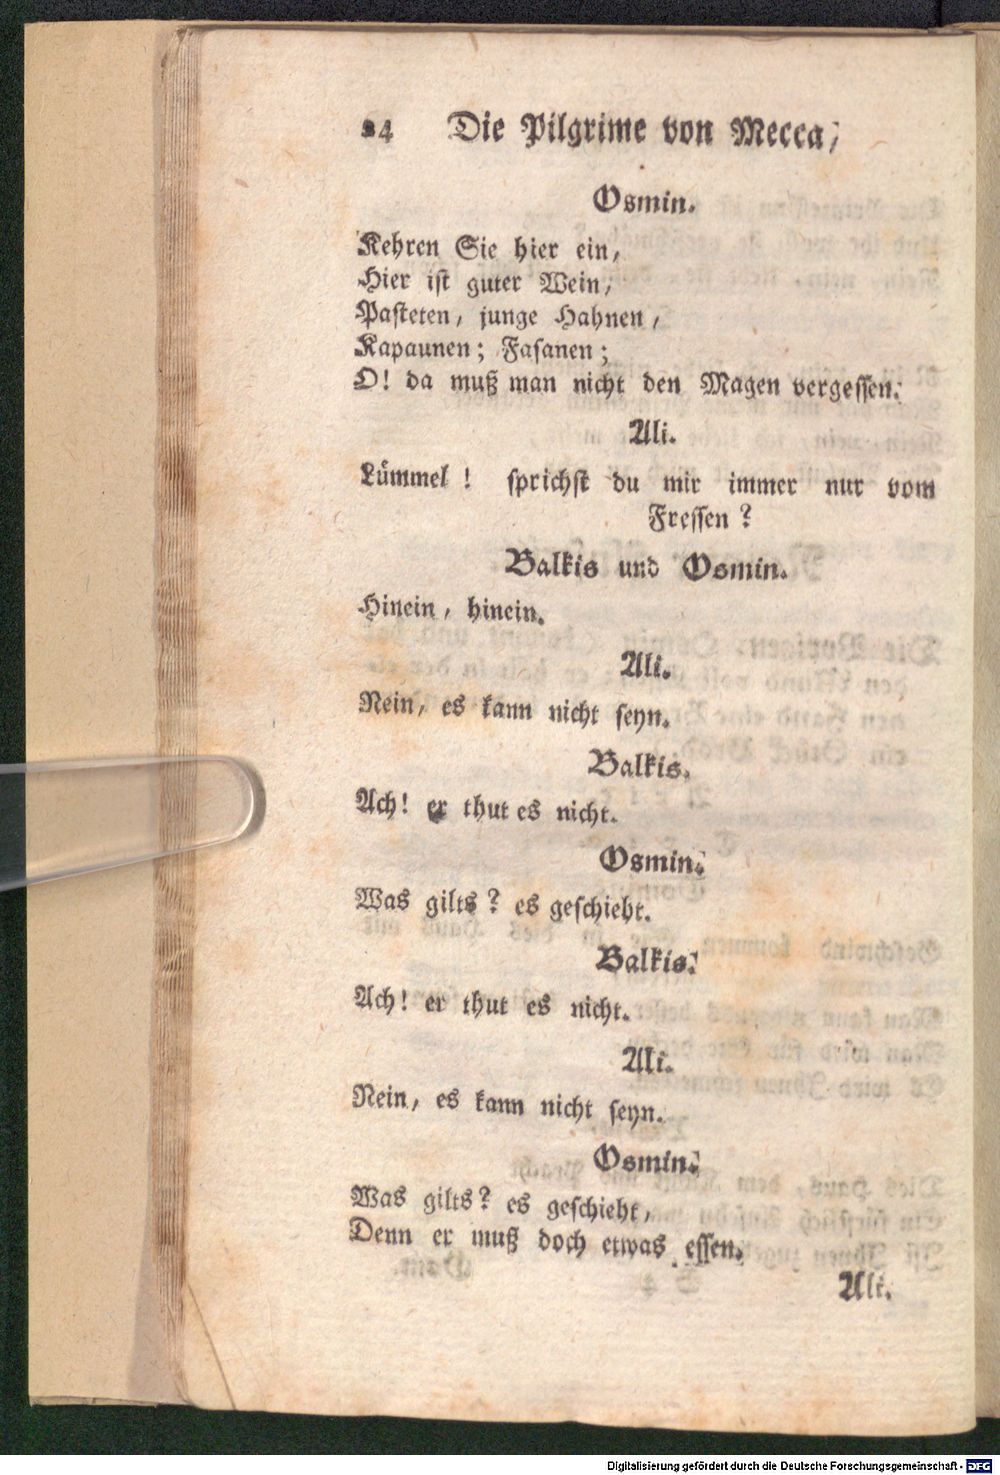 24 Die Pilgrime von Mecca,
Osmin.
Kehren Sie hier ein,
Hier ist guter Wein,
Pasteten, junge Hahnen,
Kapaunen; Fasanen;
O! da muß man nicht den Magen vergessen.
Ali.
Lümmel! sprichst du mir immer nur vom
Fressen?
Balkis und Osmin.
Hinein, hinein.
Ali.
Nein, es kann nicht seyn.
Balkis.
Ach! er thut es nicht.
Osmin.
Was gilts? es geschieht.
Balkis.
Ach! er thut es nicht.
Ali.
Nein, es kann nicht seyn.
Osmin.
Was gilts? es geschieht,
Denn er muß doch etwas essen.
Ali.
Digitalisierung gefördert durch die Deutsche Forschungsgemeinschaft - DFG